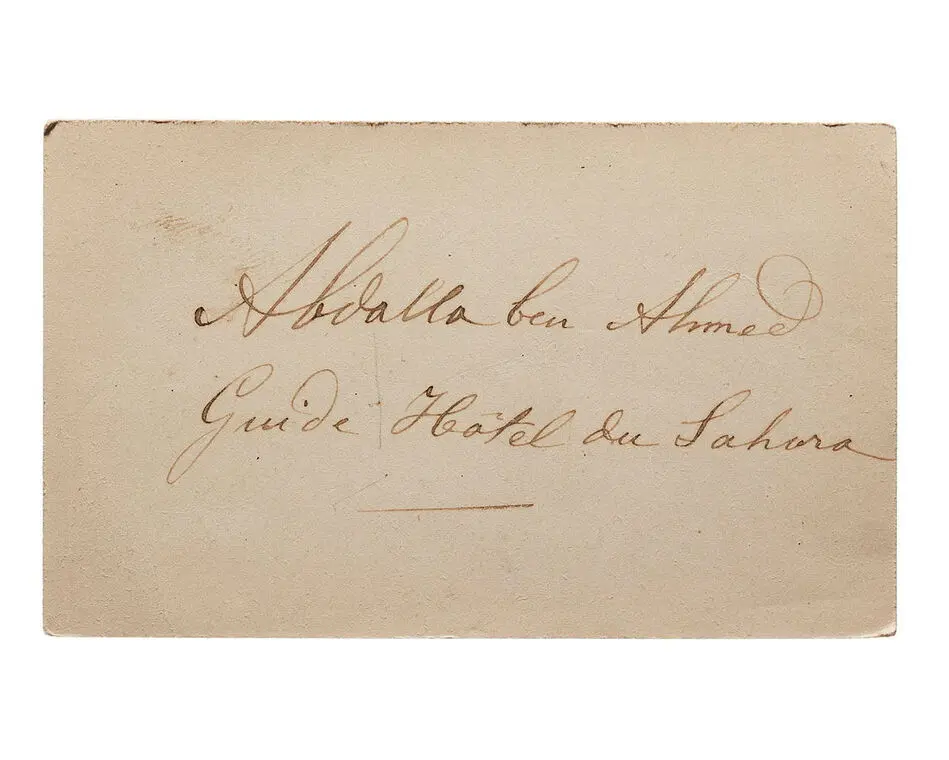 Abdalla ben Ahmed
Guide Hôtel du Sahara